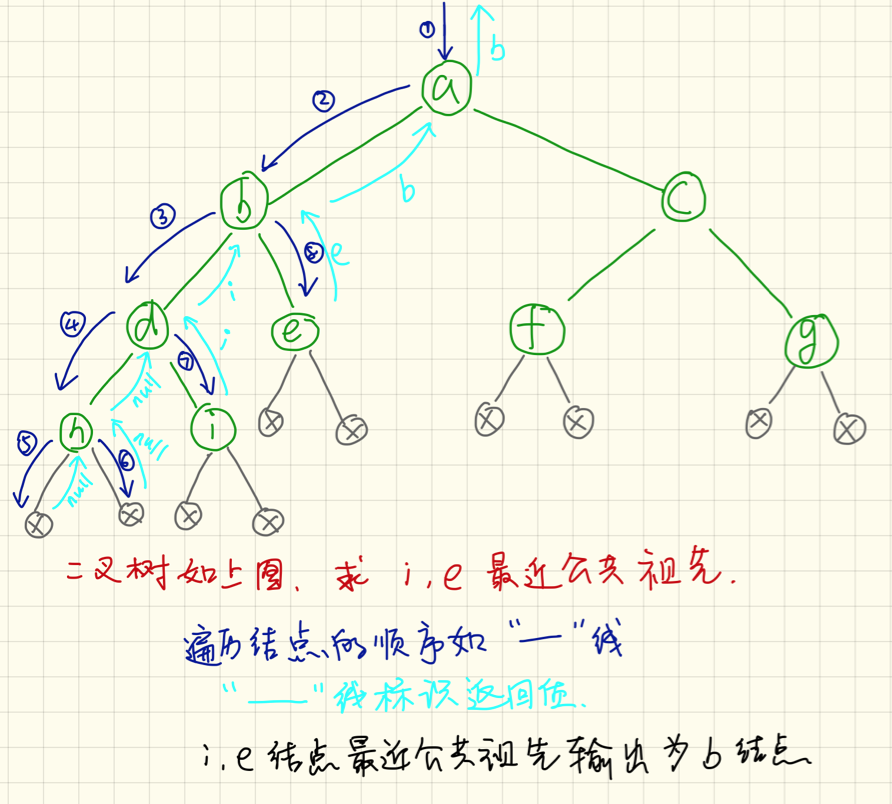 ① b
a
②
b b c
③ ⑧ e
i
④ d ⑦ i e f g
null
⑤ h null ⑥ i
null
二叉树如上图、求 i,e 最近公共祖先.
遍历结点的顺序如"—"线
"——"线标识返回值.
i,e 结点最近公共祖先输出为 b 结点